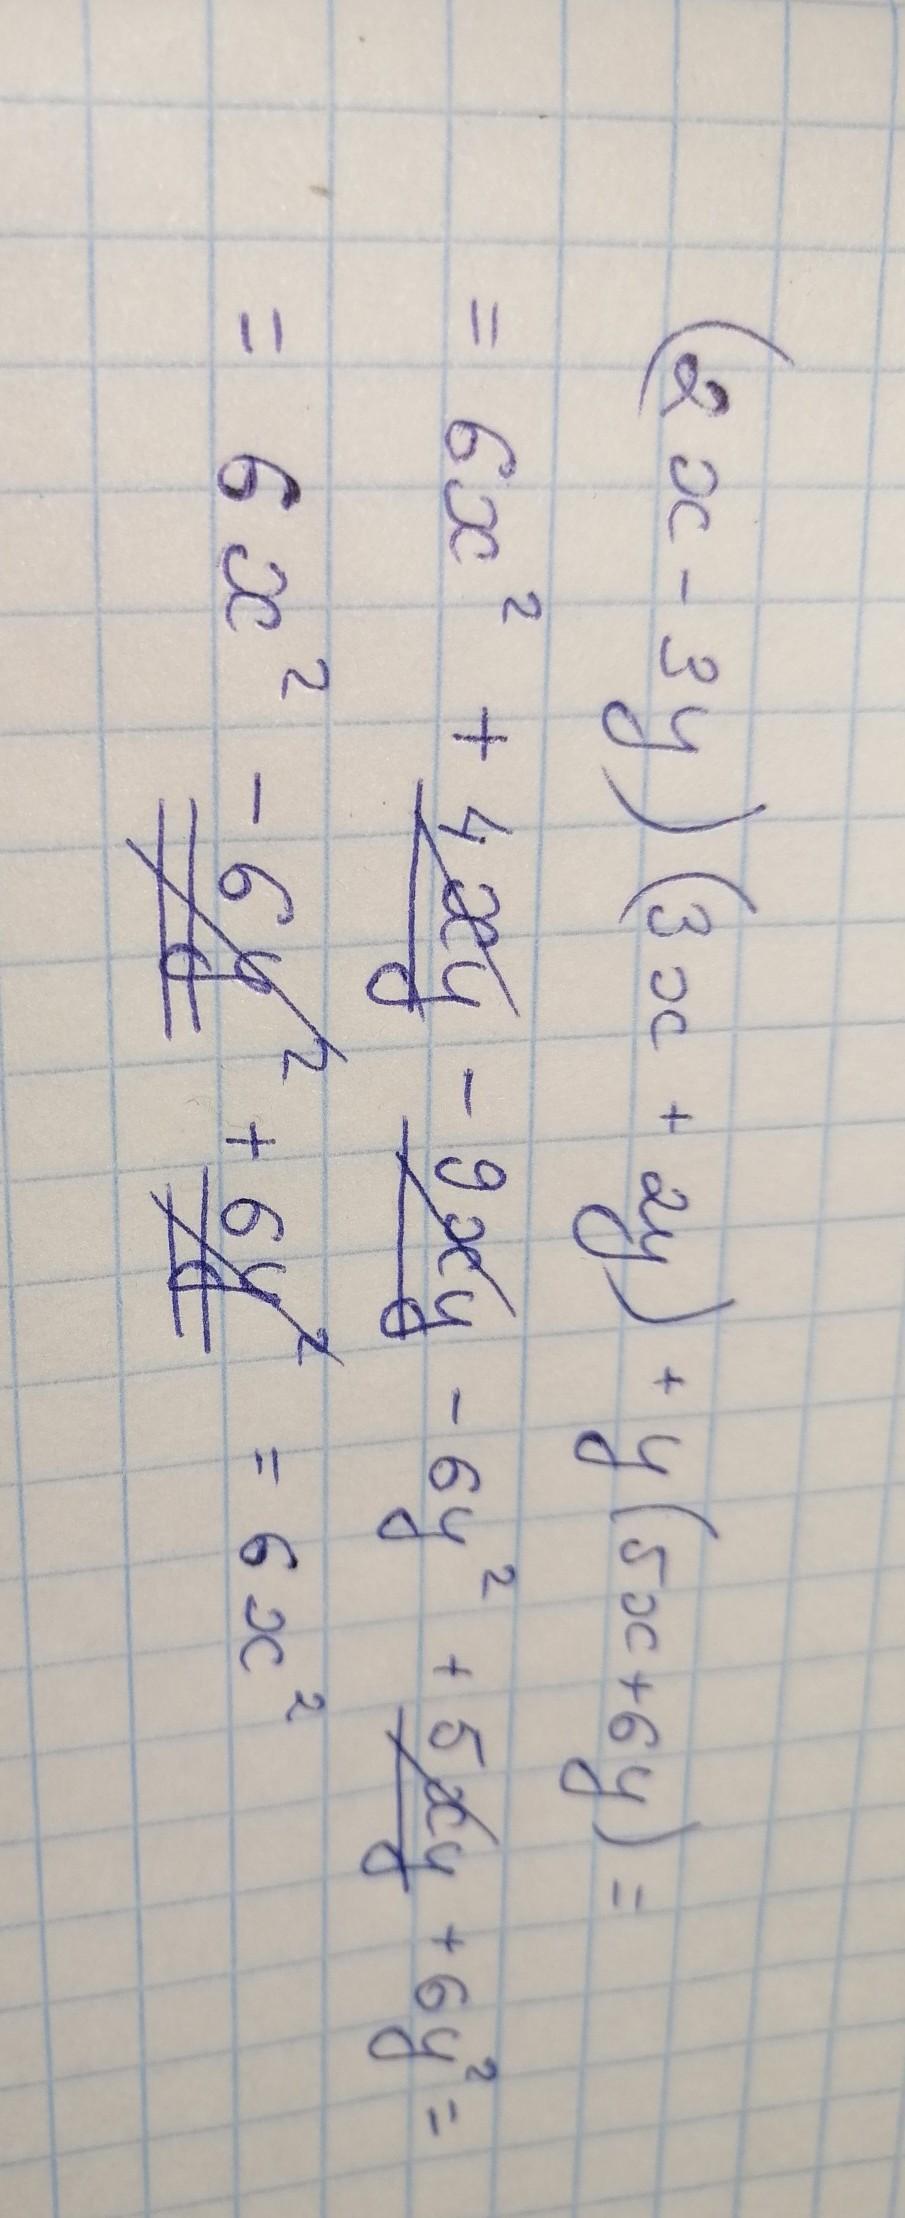 (2x - 3y)(3x + 2y) + y(5x + 6y) =
= 6x² + 4xy - 9xy - 6y² + 5xy + 6y² =
= 6x² - 6y² + 6y² = 6x²